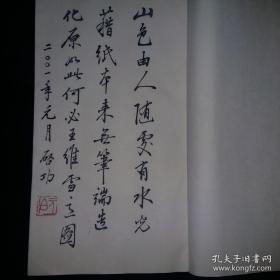 山色由人随处有水光
藉纸本来无笔端造
化原如此何必王维雪意图
二〇〇一年元月 启功
孔夫子旧书网